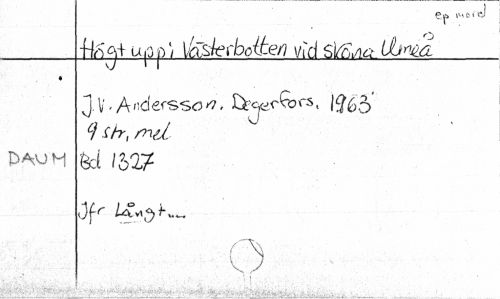 ep mord
Högt uppi Västerbotten vid sköna Umeå
J.V. Andersson. Degerfors. 1963
9 str, mel
DAUM Bd 1327
Jfr Långt...